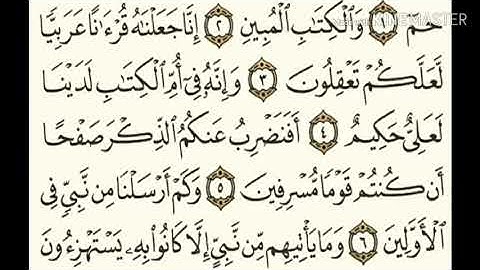 حمٓ ١ وَٱلْكِتَٰبِ ٱلْمُبِينِ ٢ إِنَّا جَعَلْنَٰهُ قُرْءَٰنًا عَرَبِيًّا
لَّعَلَّكُمْ تَعْقِلُونَ ٣ وَإِنَّهُۥ فِىٓ أُمِّ ٱلْكِتَٰبِ لَدَيْنَا
لَعَلِىٌّ حَكِيمٌ ٤ أَفَنَضْرِبُ عَنكُمُ ٱلذِّكْرَ صَفْحًا
أَن كُنتُمْ قَوْمًا مُّسْرِفِينَ ٥ وَكَمْ أَرْسَلْنَا مِن نَّبِىٍّ فِى
ٱلْأَوَّلِينَ ٦ وَمَا يَأْتِيهِم مِّن نَّبِىٍّ إِلَّا كَانُوا۟ بِهِۦ يَسْتَهْزِءُونَ
KINEMASTER